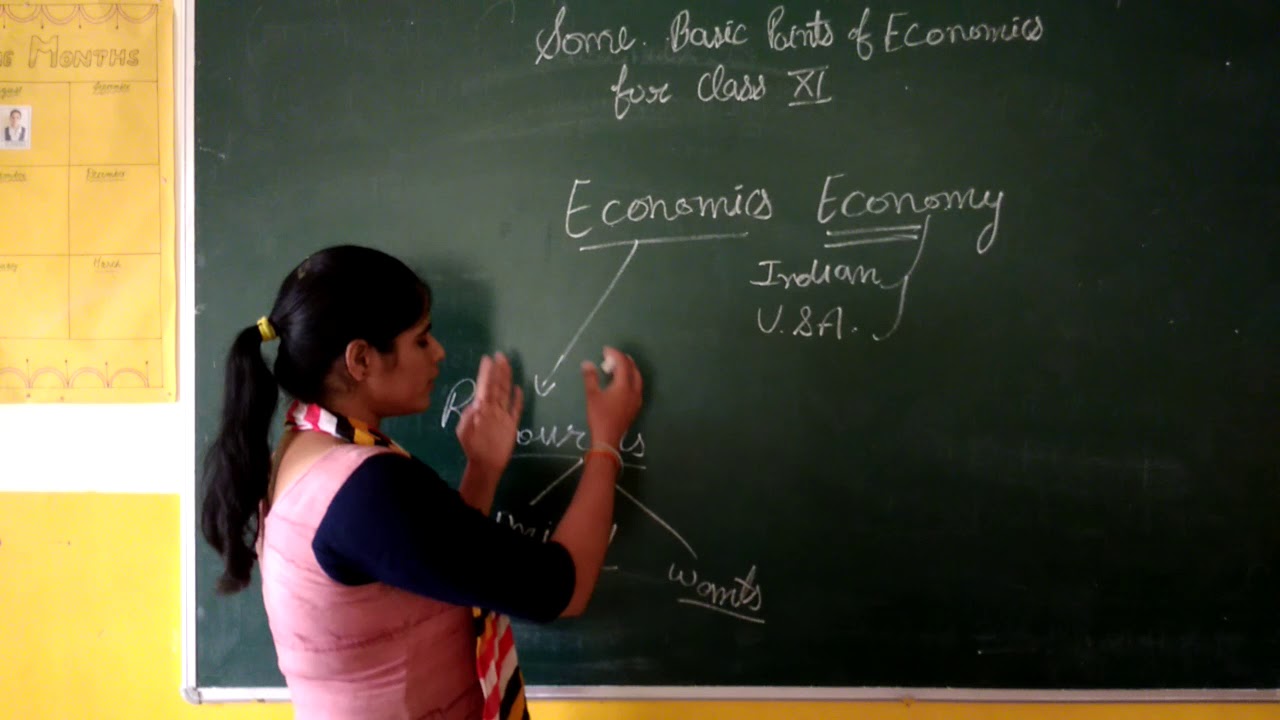 MONTHS
Some Basic Points of Economics
for Class XI
Economics Economy
Indian
U.S.A.
wants
December
March